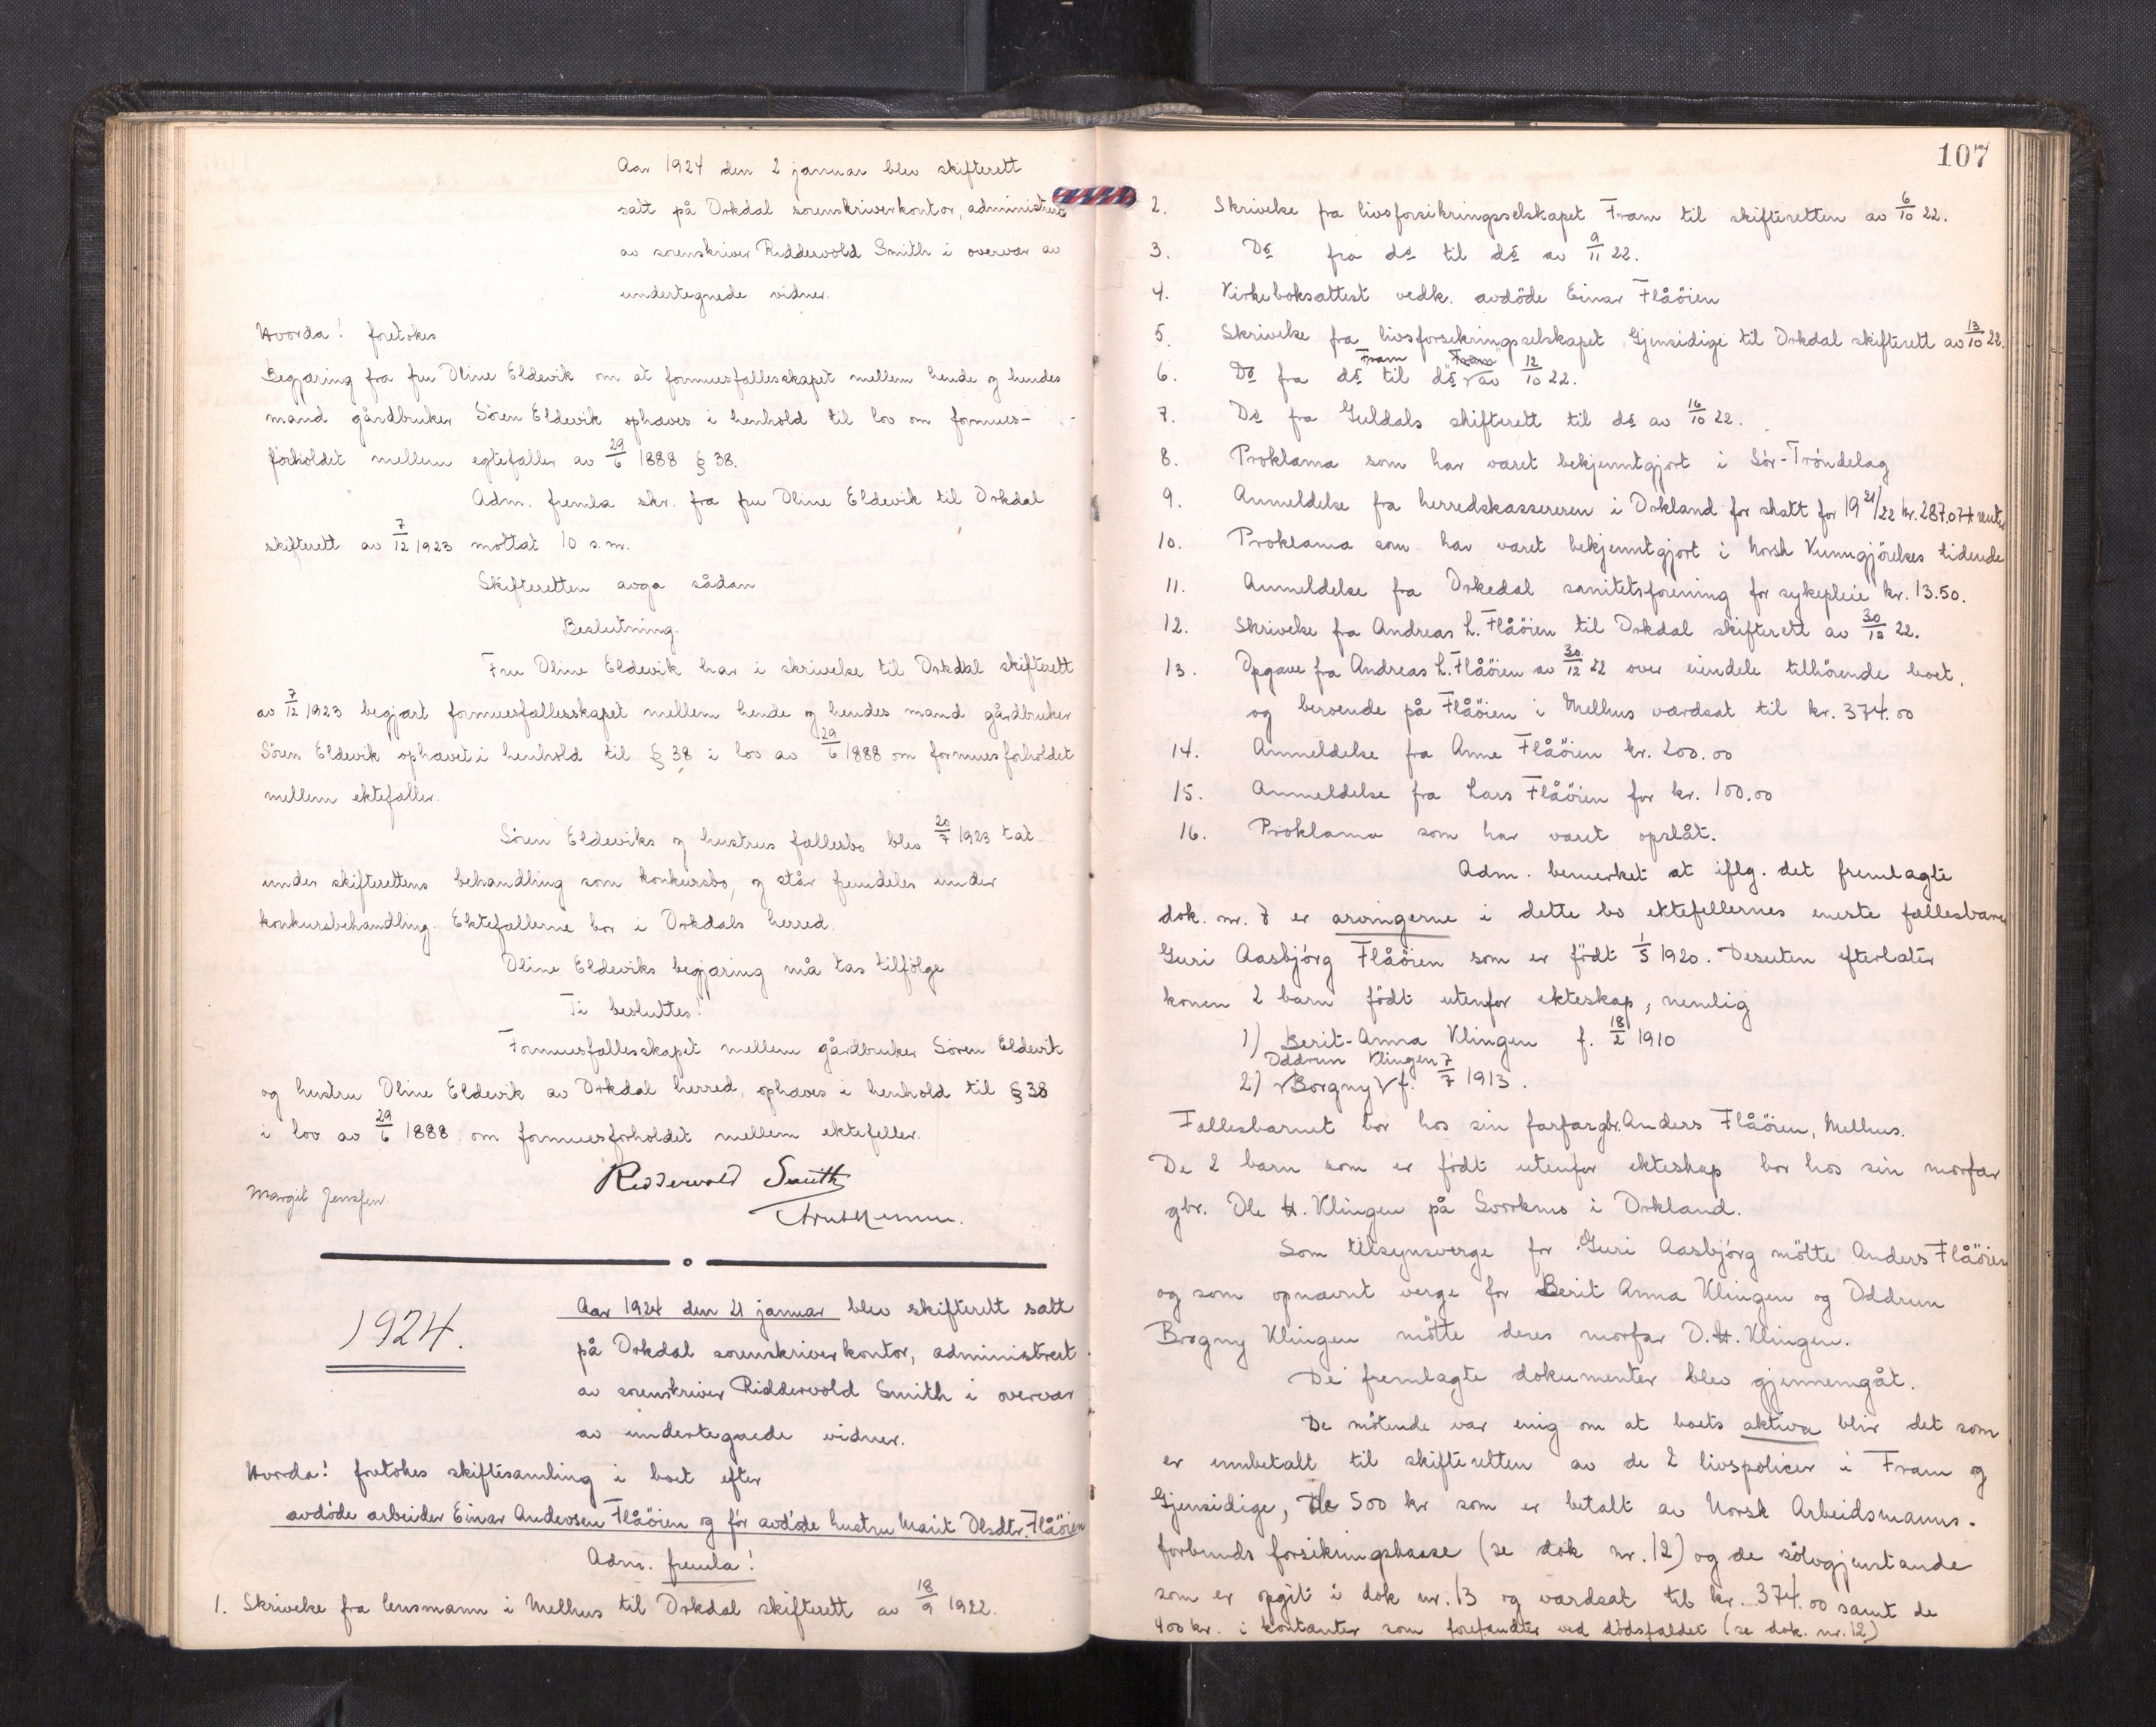 Aar 1924 den 2 januar blev skifterett
satt på Orkdal sorenskriverkontor, administrert
av sorenskriver Ridderwold Smith i overvær av
undertegnede vidner.
Hvorda! foretokes
Begjæring fra fru Oline Eldevik om at formuesfællesskapet mellem hende og hendes
mand gårdbruker Sören Eldevik ophæves i henhold til lov om formues-
forholdet mellem egtefæller av 29/6 1888 § 38.
Adm. fremla skr. fra fru Oline Eldevik til Orkdal
skifterett av 7/12 1923 mottat 10 s.m.
Skifteretten avga sådan
Beslutning.
Fru Oline Eldevik har i skrivelse til Orkdal skifterett
av 7/12 1923 begjært formuesfællesskapet mellem hende og hendes mand gårdbruker
Sören Eldevik ophævet i henhold til § 38 i lov av 29/6 1888 om formuesforholdet
mellem ektefæller.
Sören Eldeviks og hustrus fællesbo blev 20/7 1923 tat
under skifterettens behandling som konkursbo, og står fremdeles under
konkursbehandling. Ektefællerne bor i Orkdals herred.
Oline Eldeviks begjæring må tas tilfölge
Ti besluttes!
Formuesfællesskapet mellem gårdbruker Sören Eldevik
og hustru Oline Eldevik av Orkdal herred, ophæves i henhold til § 38
i lov av 29/6 1888 om formuesforholdet mellem ektefeller.
Ridderwold Smith
Margit Jenssen.
1924.
Aar 1924 den 21 januar blev skifterett satt
på Orkdal sorenskriverkontor, administreret
av sorenskriver Ridderwold Smith i overvær
av undertegnede vidner.
Hvorda! foretokes skiftesamling i boet efter
avdöde arbeider Einar Andersen Flåöien og för avdöde hustru Marit Olsdtr. Flåöien
Adm. fremla!
1. Skrivelse fra lensmann i Melhus til Orkdal skifterett av 18/9 1922.
107
2. Skrivelse fra livsforsikringsselskapet Fram til skifteretten av 6/10 22.
3. Do fra do til do av 9/11 22.
4. Kirkeboksattest vedk. avdöde Einar Flåöien
5. Skrivelse fra livsforsikringsselskapet Gjensidige til Orkdal skifterett av 13/10 22.
6. Do fra do Fram til do av 12/10 22.
7. Do fra Guldals skifterett til do av 16/10 22.
8. Proklama som har været bekjenntgjort i Sör-Tröndelag
9. Anmeldelse fra herredskassereren i Orkland for skatt for 19 21/22 kr. 287,07 + renter
10. Proklama som har været bekjenntgjort i Norsk Kunngjörelses tidende
11. Anmeldelse fra Orkedal sanitetsforening for sykepleie kr. 13.50.
12. Skrivelse fra Andreas L. Flåöien til Orkdal skifterett av 30/12 22.
13. Opgave fra Andreas L. Flåöien av 30/12 22 over eiendele tilhörende boet,
og beroende på Flåöien i Melhus værdsat til kr. 374.00
14. Anmeldelse fra Anne Flåöien kr. 200.00
15. Anmeldelse fra Lars Flåöien for kr. 100.00
16. Proklama som har været opslåt.
Adm. bemerket at iflg. det fremlagte
dok. nr. 7 er arvingerne i dette bo ektefellernes eneste fællesbarn
Guri Aasbjörg Flåöien som er födt 1/5 1920. Desuten efterlater
konen 2 barn födt utenfor ekteskap, nemlig
1) Berit-Anna Klingen f. 18/2 1910
2) Oddrun Borgny Klingen f. 7/7 1913.
Fællesbarnet bor hos sin farfar gbr. Anders Flåöien, Melhus.
De 2 barn som er födt utenfor ekteskap bor hos sin morfar
gbr. Ole H. Klingen på Svorkmo i Orkland.
Som tilsynsverge for Guri Aasbjörg mötte Anders Flåöien
og som opnævnt verge for Berit Anna Klingen og Oddrun
Borgny Klingen mötte deres morfar O. H. Klingen.
De fremlagte dokumenter blev gjennemgåt.
De mötende var enig om at boets aktiva blir det som
er innbetalt til skifteretten av de 2 livspolicer i Fram og
Gjensidige, de 500 kr som er betalt av Norsk Arbeidsmanns-
forbunds forsikringskasse (se dok nr. 12) og de sölvgjenstande
som er opgit i dok nr. 13 og værdsat til kr. 374.00 samt de
400 kr. i kontanter som forefandtes ved dödsfaldet (se dok. nr. 12)